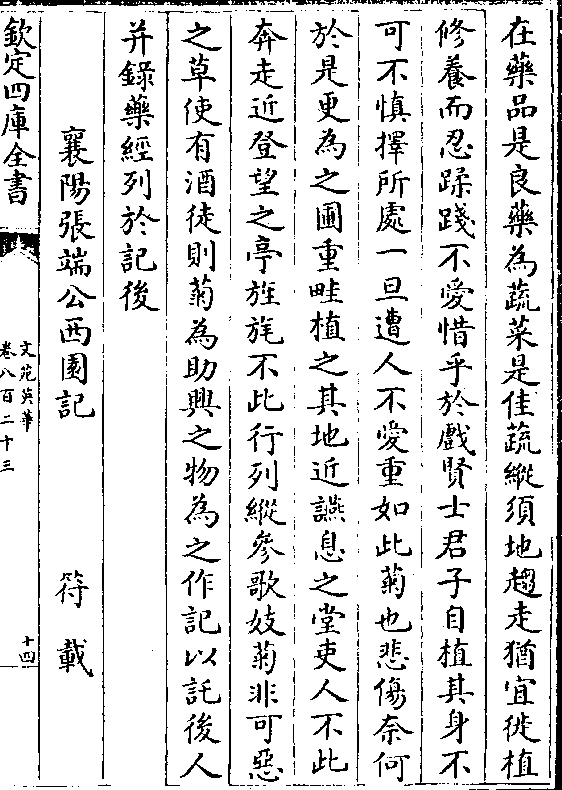 在藥品是良藥為蔬菜是佳蔬縱須地趨走猶宜徙植
修養而忍蹂踐不愛惜乎於戲賢士君子自植其身不
可不慎擇所處一旦遭人不愛重如此菊也悲傷奈何
於是更為之圃重畦植之其地近讌息之堂吏人不此
奔走近登望之亭旌旄不此行列縱參歌妓菊非可惡
之草使有酒徒則菊為助興之物為之作記以託後人
并錄藥經列於記後
襄陽張端公西園記 符載
欽定四庫全書
文苑英華
卷八百二十三
十四